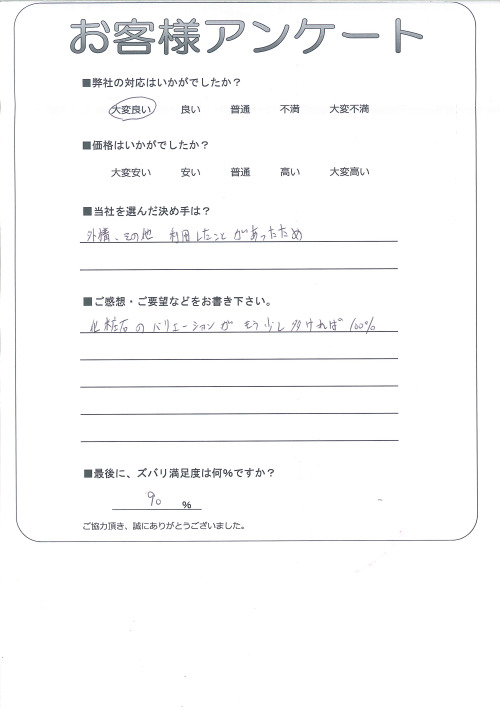 お客様アンケート
■弊社の対応はいかがでしたか？
大変良い 良い 普通 不満 大変不満
■価格はいかがでしたか？
大変安い 安い 普通 高い 大変高い
■当社を選んだ決め手は？
外構、その他 利用したことがあったため
■ご感想・ご要望などをお書き下さい。
化粧石のバリエーションがもう少し多ければ100%
■最後に、ズバリ満足度は何％ですか？
90 %
ご協力頂き、誠にありがとうございました。